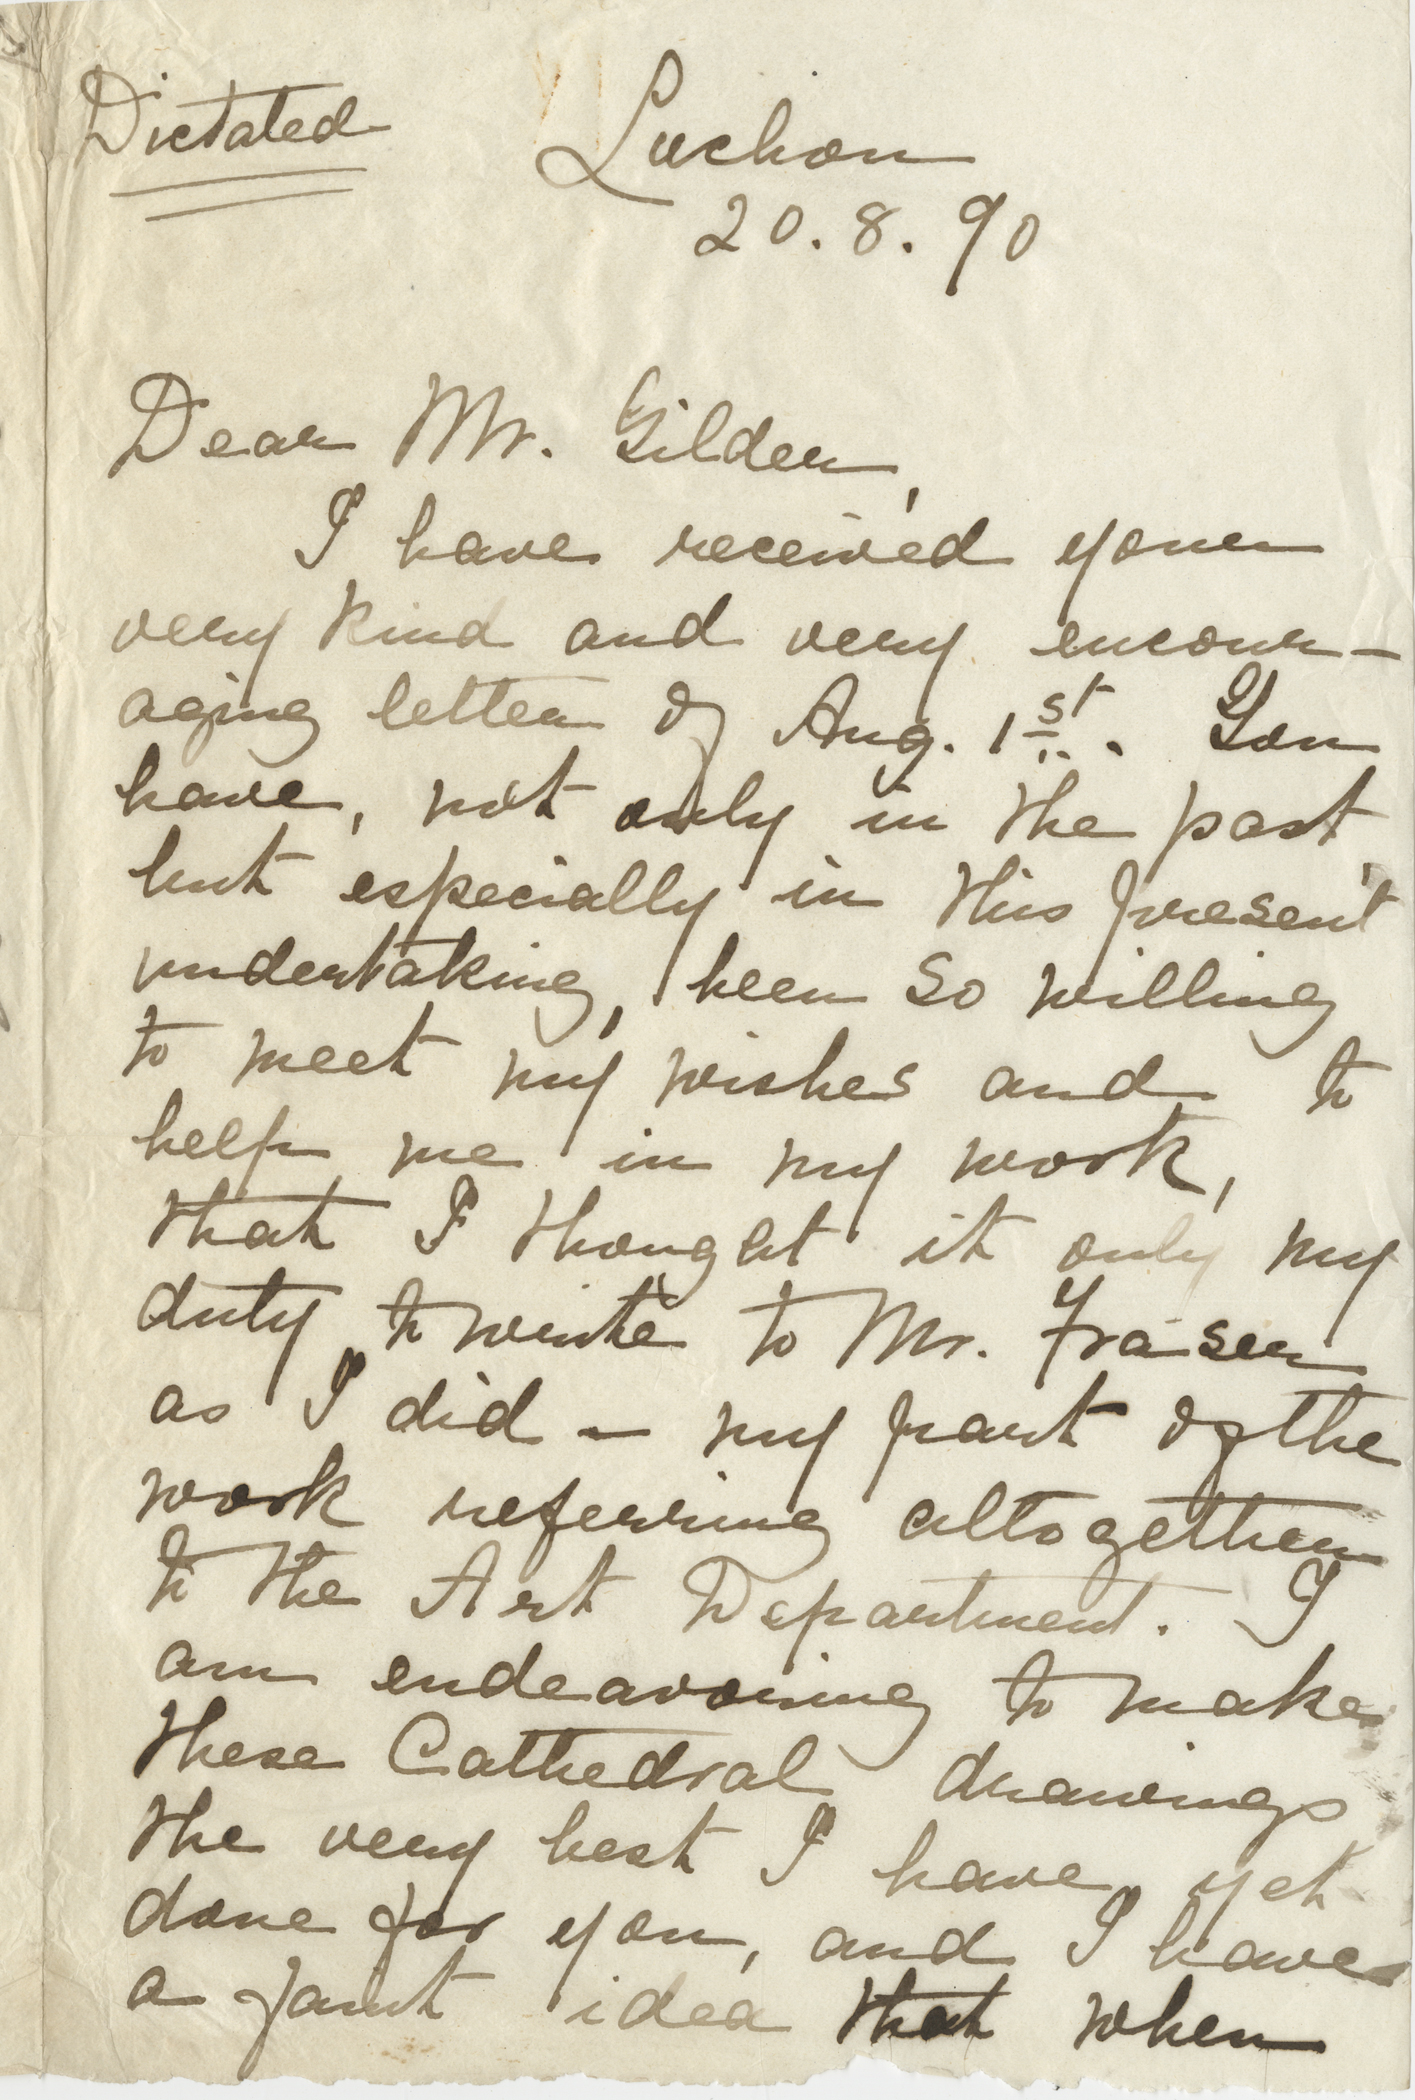 Dictated
Luchon
20.8.90
Dear Mr. Gilder,
I have received your
very kind and very encour-
aging letter of Aug. 1st. You
have, not only in the past,
but especially in this present
undertaking, been so willing
to meet my wishes and to
help me in my work,
that I thought it only my
duty to write to Mr. Fraser
as I did – my part of the
work referring altogether
to the Art Department. I
am endeavoring to make
these Cathedral drawings
the very best I have yet
done for you, and I have
a faint idea that when